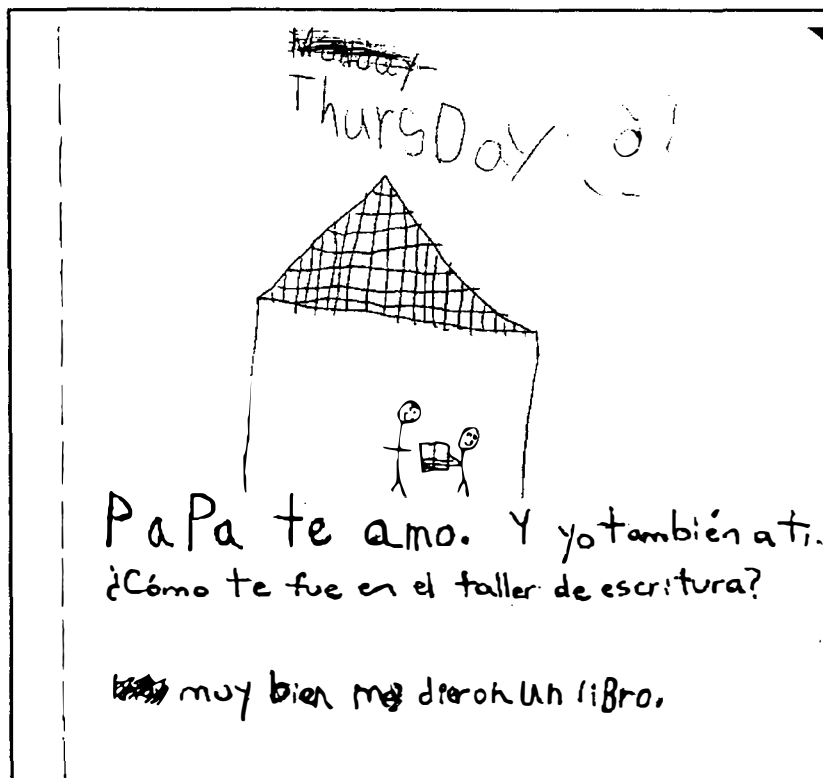 Monday
ThursDay
PaPa te amo. Y yo también a ti.
¿Cómo te fue en el taller de escritura?
muy bien me dieron un liBro.